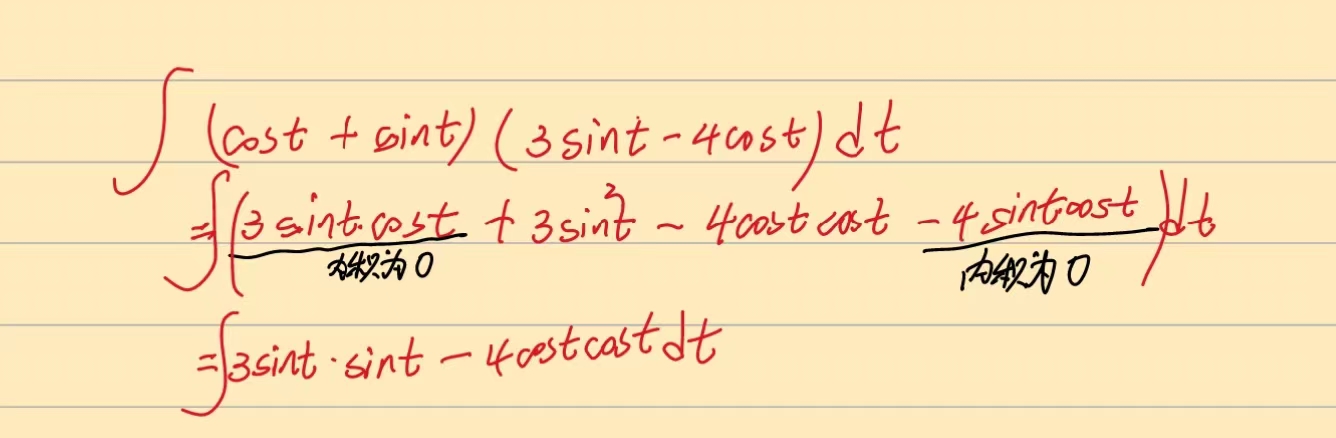 ∫ (cost + sint) (3sint - 4cost) dt
= ∫ (3sint·cost + 3sin²t - 4cost cost - 4sintcost) dt
内积为0 内积为0
= ∫ 3sint·sint - 4costcost dt